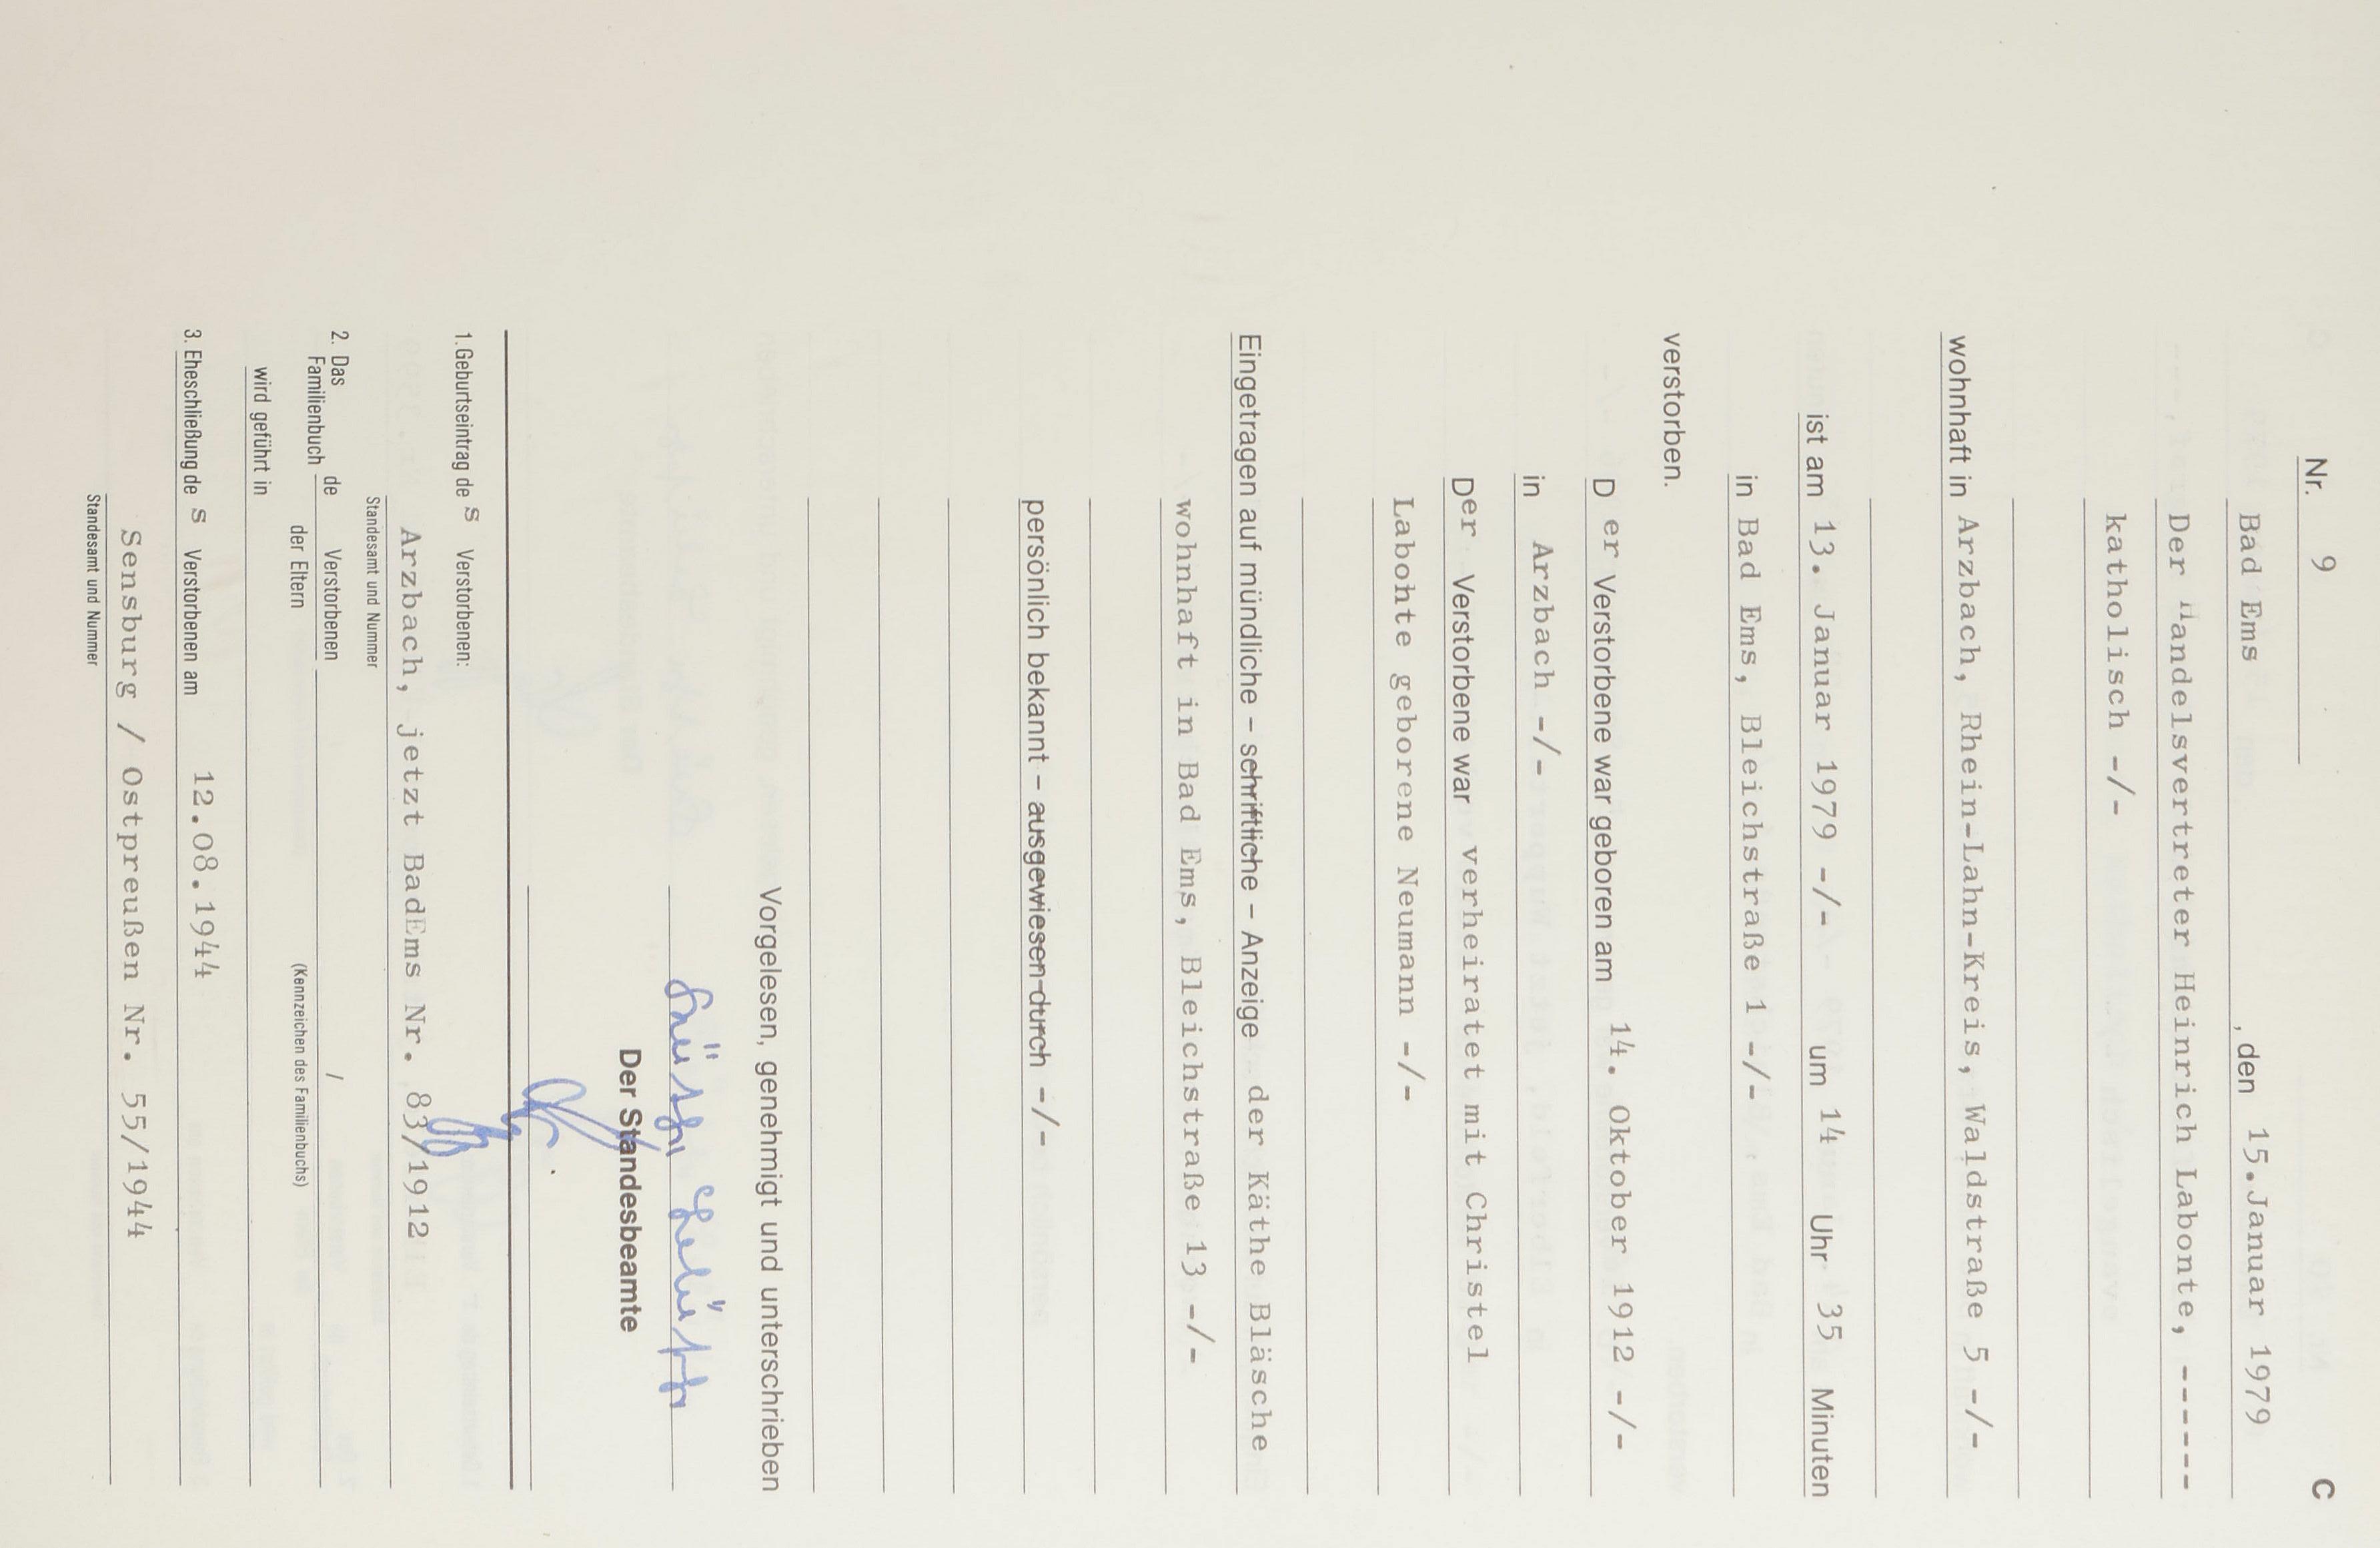 Nr. 9 C
Bad Ems , den 15.Januar 1979
Der Handelsvertreter Heinrich Labonte, ------
katholisch -/-
wohnhaft in Arzbach, Rhein-Lahn-Kreis, Waldstraße 5 -/-
ist am 13. Januar 1979 -/- um 14 Uhr 35 Minuten
in Bad Ems, Bleichstraße 1 -/-
verstorben.
D er Verstorbene war geboren am 14. Oktober 1912 -/-
in Arzbach -/-
Der Verstorbene war verheiratet mit Christel
Labohte geborene Neumann -/-
Eingetragen auf mündliche – schriftliche – Anzeige der Käthe Bläsche
wohnhaft in Bad Ems, Bleichstraße 13 -/-
persönlich bekannt – ausgewiesen durch -/-
Vorgelesen, genehmigt und unterschrieben
Der Standesbeamte
1. Geburtseintrag de s Verstorbenen:
Arzbach, jetzt BadEms Nr. 83/1912
Standesamt und Nummer
2. Das Familienbuch de Verstorbenen /
der Eltern (Kennzeichen des Familienbuchs)
wird geführt in
3. Eheschließung de s Verstorbenen am 12.08.1944
Sensburg / Ostpreußen Nr. 55/1944
Standesamt und Nummer